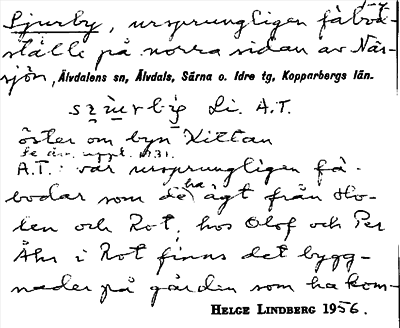 Ljurby, ursprungligen fäbod-
ställe på norra sidan av Näs-
sjön, Älvdalens sn, Älvdals, Särna o. Idre tg, Kopparbergs län.
Li. A.T.
öster om byn Kittan
A.T.: var ursprungligen fä-
bodar som de ha ägt från Ho-
len och Rot, hos Olof och Per
Åhr i Rot finns det bygg-
nader på gården som ha kom-
HELGE LINDBERG 1956.